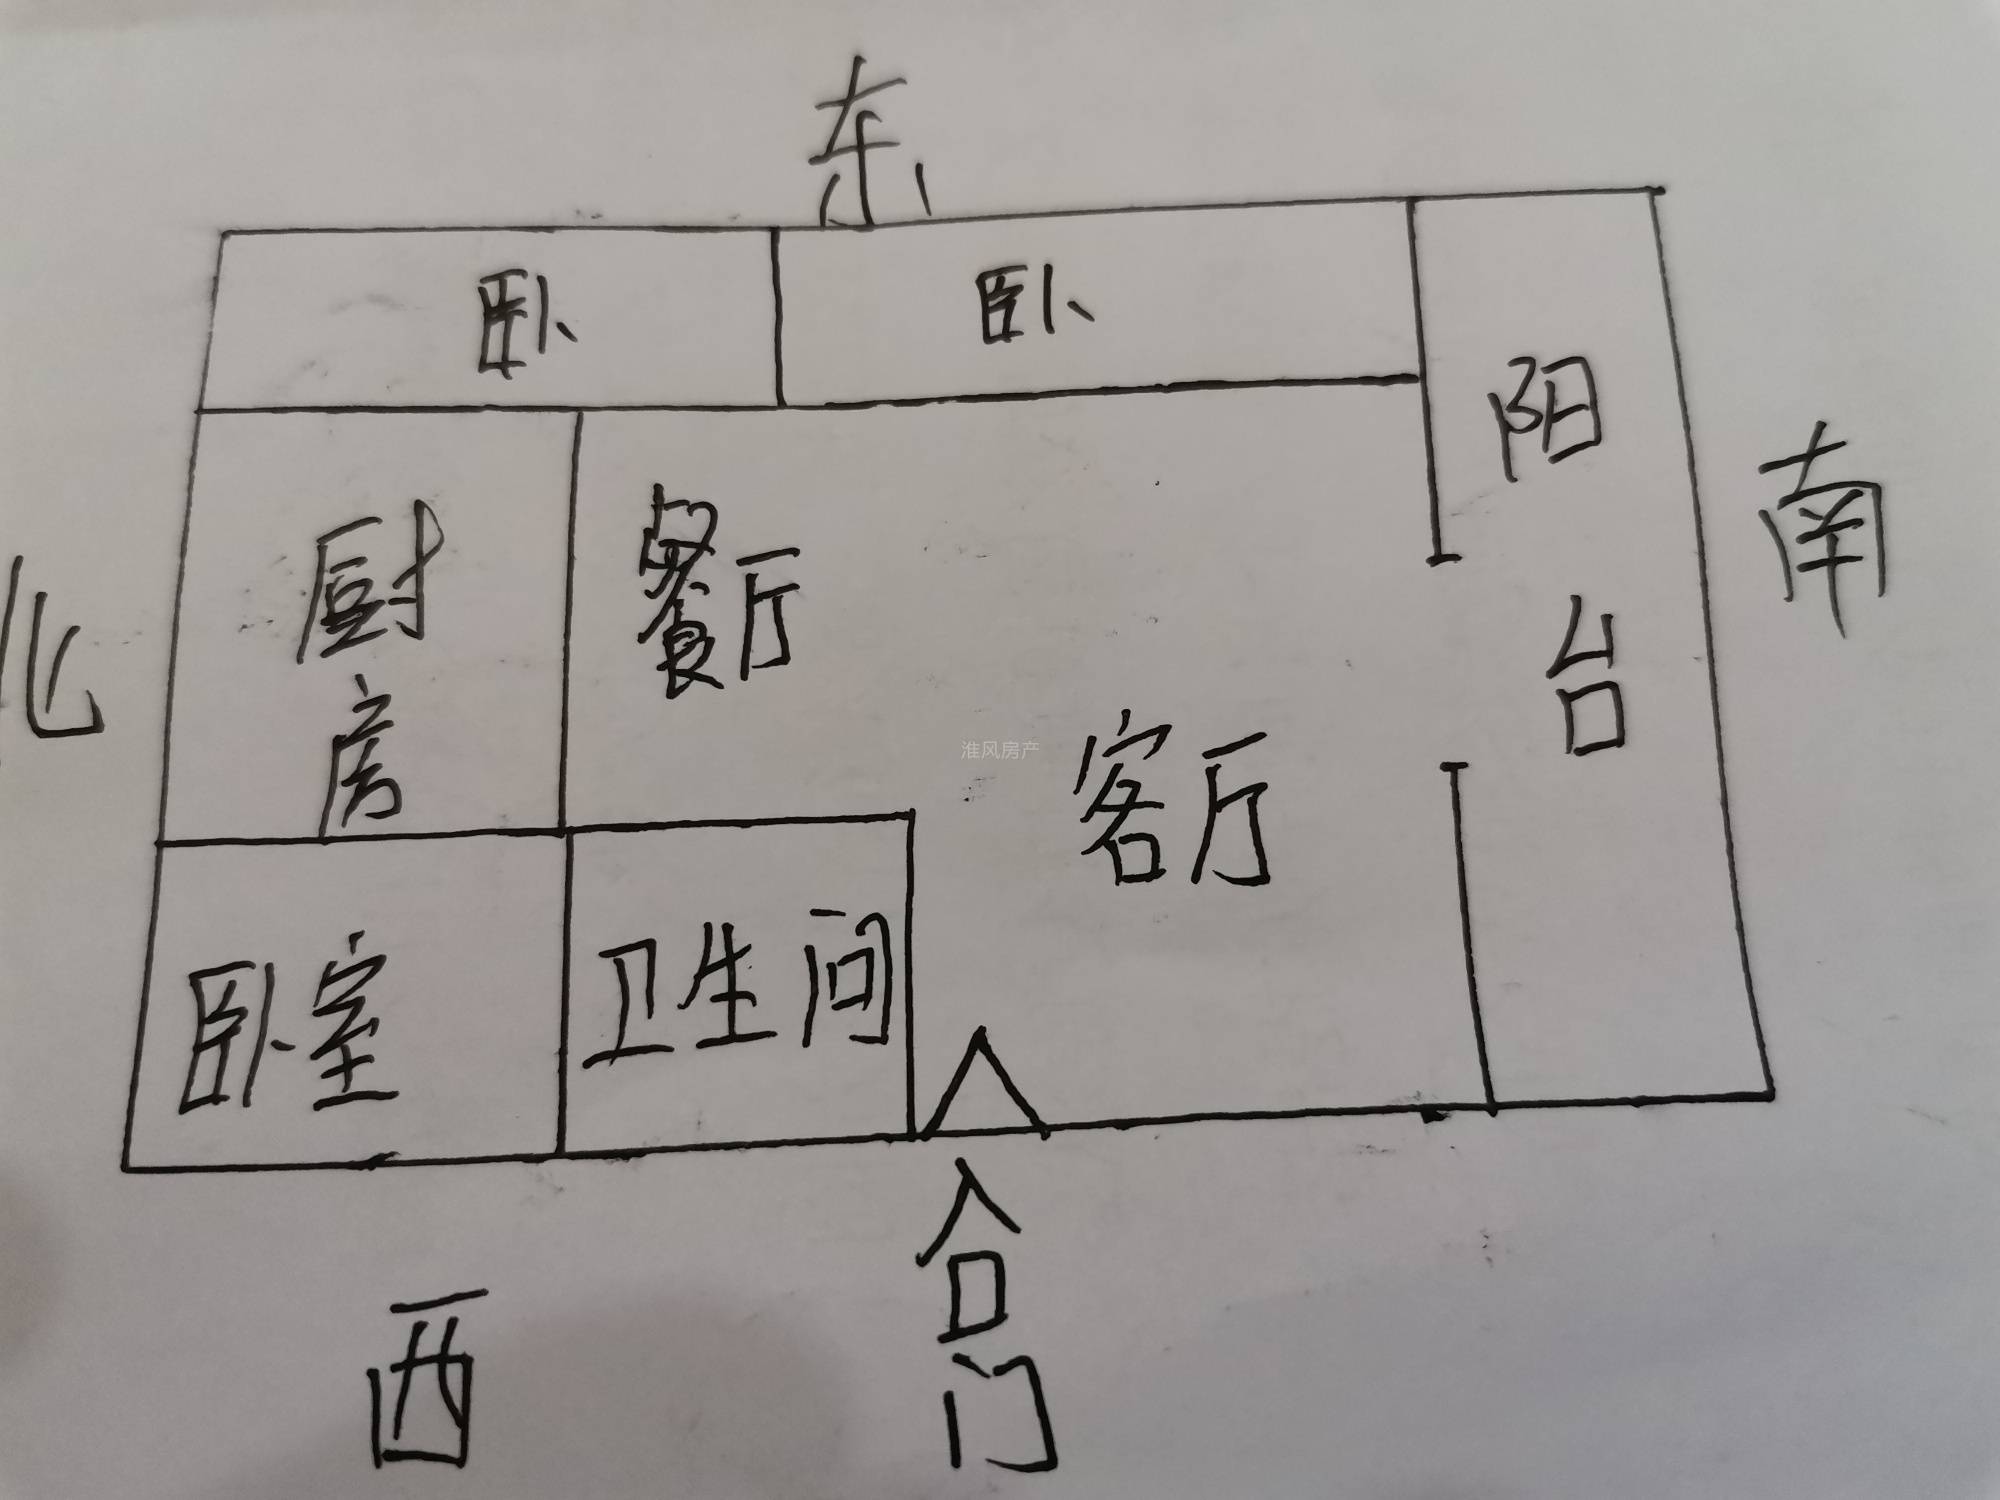 东
卧
卧
阳台
南
北
厨房
餐厅
客厅
淮风房产
卧室
卫生间
入口门
西